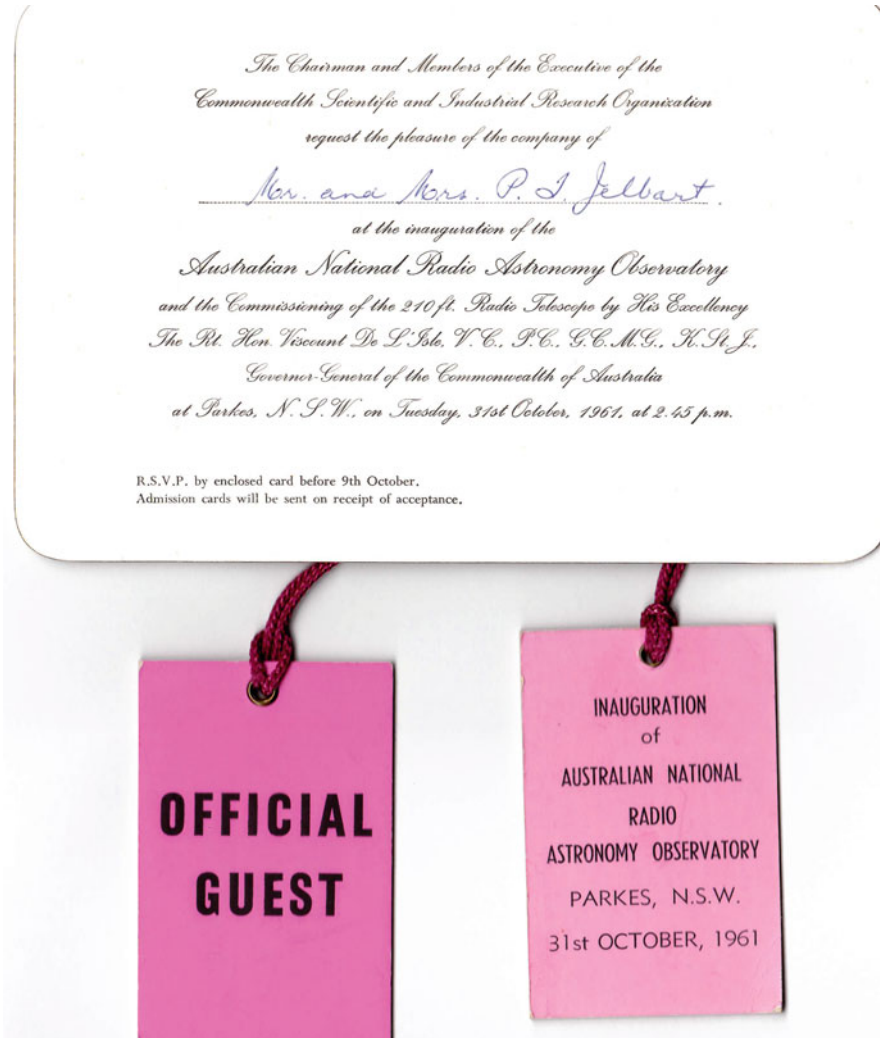 The Chairman and Members of the Executive of the
Commonwealth Scientific and Industrial Research Organization
request the pleasure of the company of
Mr. and Mrs. P. I. Jelbart.
at the inauguration of the
Australian National Radio Astronomy Observatory
and the Commissioning of the 210 ft. Radio Telescope by His Excellency
The Rt. Hon. Viscount De L'Isle, V.C., P.C., G.C.M.G., K.St.J.,
Governor-General of the Commonwealth of Australia
at Parkes, N.S.W., on Tuesday, 31st October, 1961, at 2.45 p.m.
R.S.V.P. by enclosed card before 9th October.
Admission cards will be sent on receipt of acceptance.
OFFICIAL
GUEST
INAUGURATION
of
AUSTRALIAN NATIONAL
RADIO
ASTRONOMY OBSERVATORY
PARKES, N.S.W.
31st OCTOBER, 1961